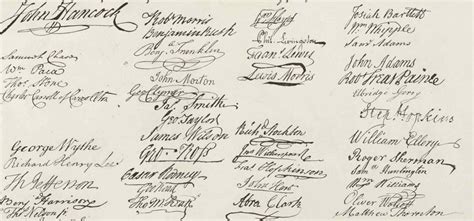 John Hancock
Samuel Chase
Wm Paca
Thos Stone
Charles Carroll of Carrollton
George Wythe
Richard Henry Lee
Th Jefferson
Benj Harrison
Thos Nelson jr
Robt Morris
Benjamin Rush
Benj Franklin
John Morton
Geo Clymer
Jas Smith
Geo Taylor
James Wilson
Geo Ross
Caesar Rodney
Geo Read
Tho M:Kean
Phil. Livingston
Lewis Morris
Richd Stockton
Jno Witherspoon
Fras Hopkinson
John Hart
Abra Clark
Josiah Bartlett
Wm Whipple
Saml Adams
John Adams
Robt Treat Paine
Elbridge Gerry
Step Hopkins
William Ellery
Roger Sherman
Saml Huntington
Wm Williams
Oliver Wolcott
Matthew Thornton